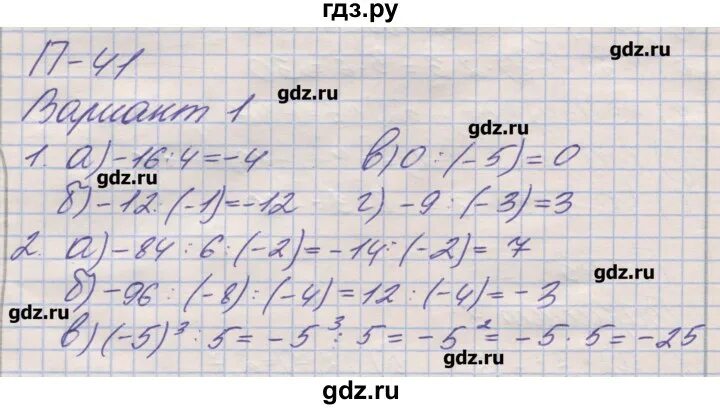 гдз.ру
П-41
gdz.ru
Вариант 1
gdz.ru
gdz.ru
1. а) -16:4=-4 в) 0:(-5)=0
gdz.ru
б) -12:(-1)=-12 г) -9:(-3)=3
2. а) -84:6:(-2)=-14:(-2)=7
gdz.ru
б) -96:(-8):(-4)=12:(-4)=-3
gdz.ru
в) (-5)³:5=-5³:5=-5²=-5·5=-25
gdz.ru
gdz.ru